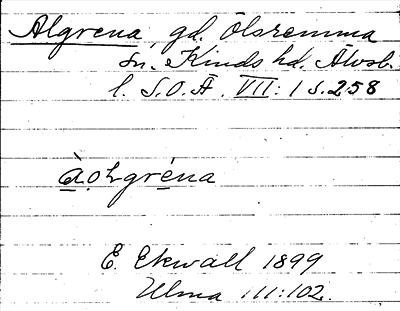 Algrena, gd. Ölsremma
sn. Kinds hd. Älvsb.
l. S.O.Ä. VII:1 s.258
àolgréna
E. Ekwall 1899
Ulma 111:102.